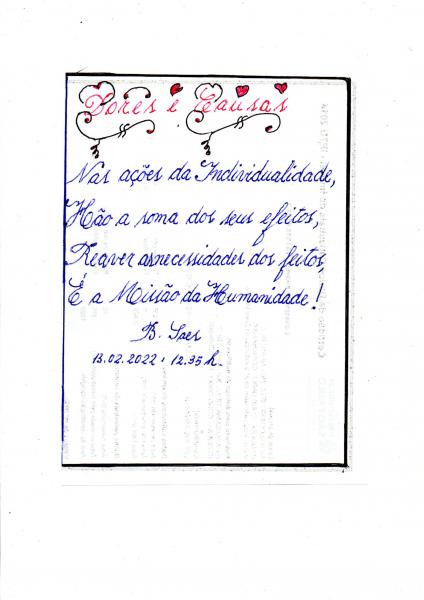 Dores e Causas
Nas ações da Individualidade,
Hão a soma dos seus efeitos,
Reaver as necessidades dos feitos,
É a Missão da Humanidade!
B. Saes
13.02.2022 · 12.35 h.